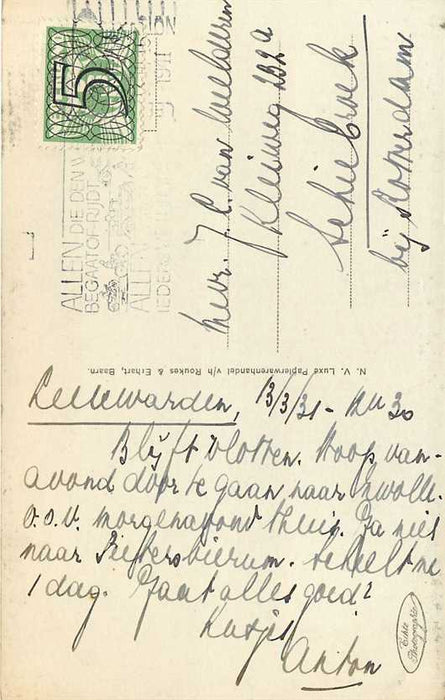 5
ALLEN DIE DEN W
BEGAAT OF RIJDT
ALLE
IEDER
Mevr. J. C. van
Kleiweg 232a
Schiebroek
bij Rotterdam
N. V. Luxe Papierwarenhandel v/h Roukes & Erhart, Baarn.
Leeuwarden, 13/3/31 -
Blijft vlotten. Hoop van-
avond door te gaan naar Zwolle.
o.o.v. morgenavond thuis. Ga niet
naar Pietersbierum. Scheelt me
1 dag. Gaat alles goed?
Kusjes
Anton
Echte
Photographie